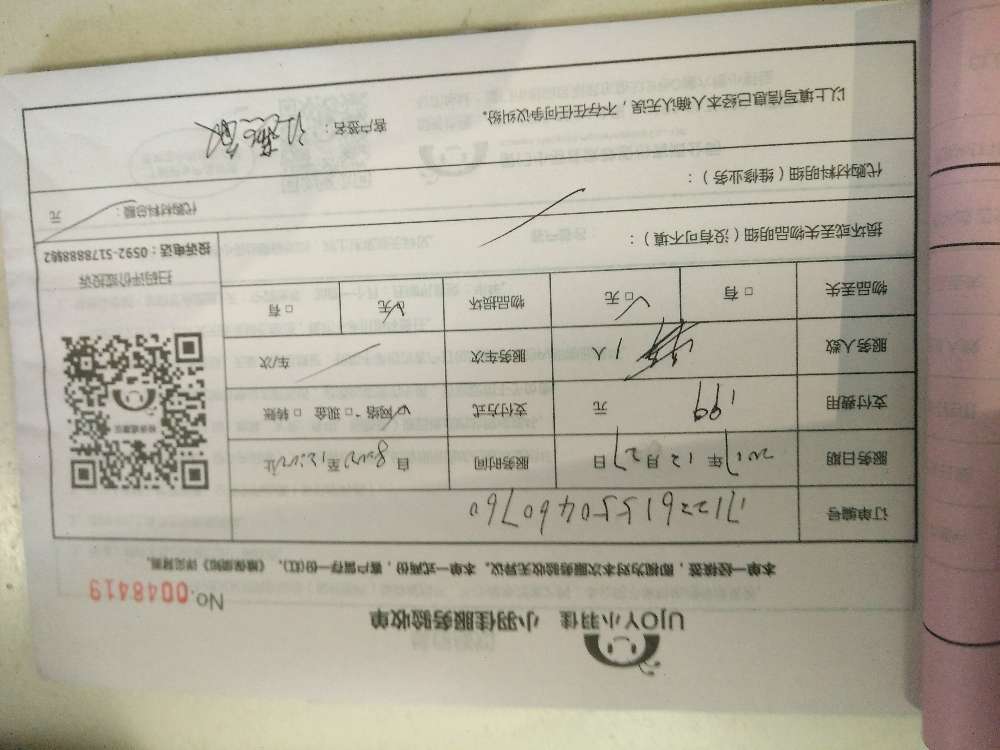 UJOY小羽佳 小羽佳服务验收单
No.0048419
本单一经核签，即视为对本次服务验收无异议。本单一式两份，客户留存一份(红)，《维保须知》详见背面。
订单编号 1712261550460760
服务日期 2017年12月27日 服务时间 自8:00至12:00止
支付费用 199 元 支付方式 网络 □ 现金 □ 转账
服务人数 人 服务车次 车/次
物品丢失 □ 有 □ 无 物品损坏 □ 有 □ 无
扫码评价或投诉
投诉电话：0592-5178888转2
损坏或丢失物品明细（没有可不填）：
代购材料明细（维修业务）：
代购材料总额： 元
以上填写信息已经本人确认无误，不存在任何争议纠纷。
客户签名：